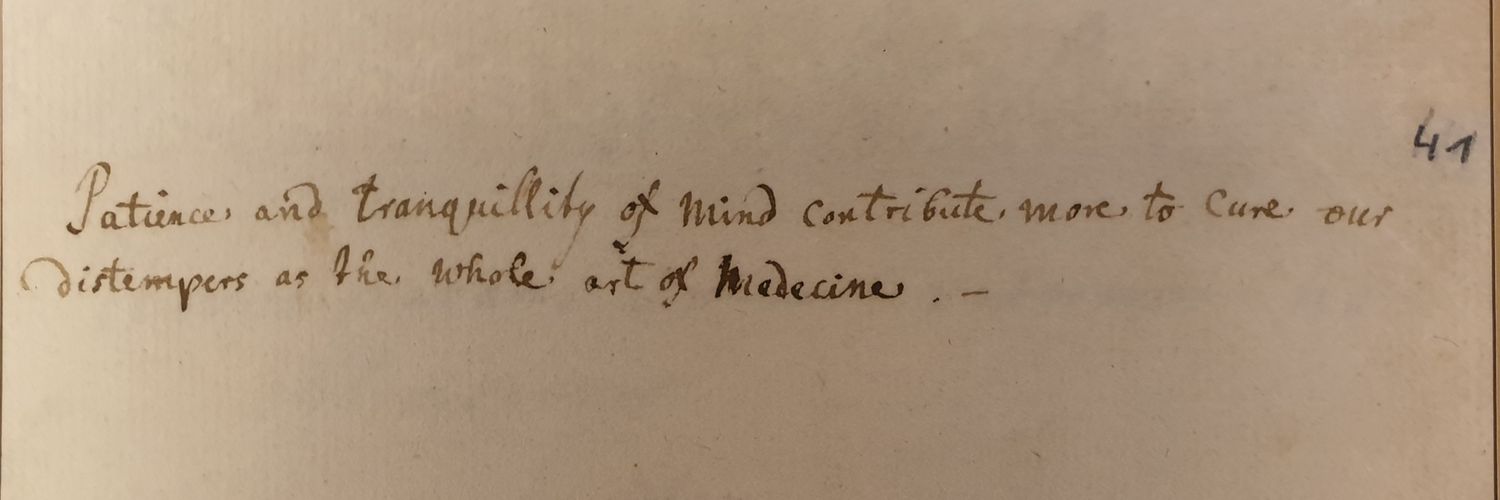 41
Patience and tranquillity of Mind contribute more to Cure our
Distempers as the whole art of Medecine . —